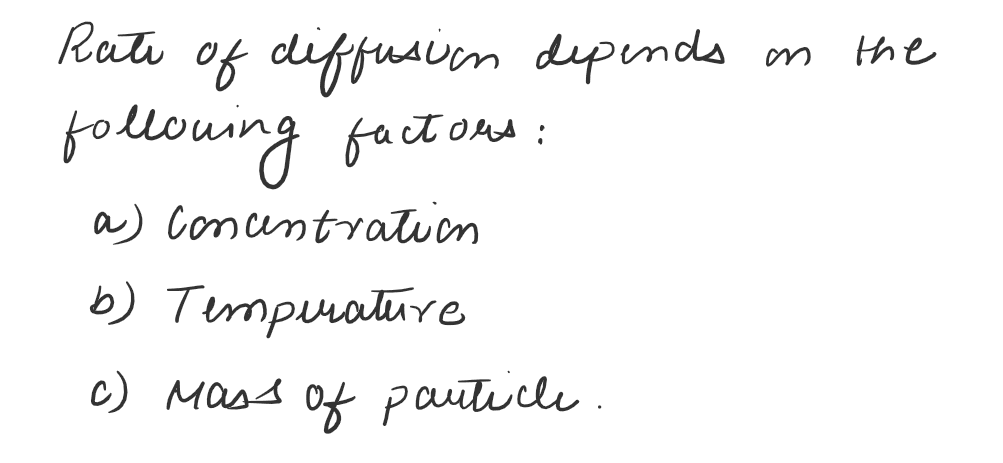 Rate of diffusion depends on the
following factors:
a) Concentration
b) Temperature
c) Mass of particle.